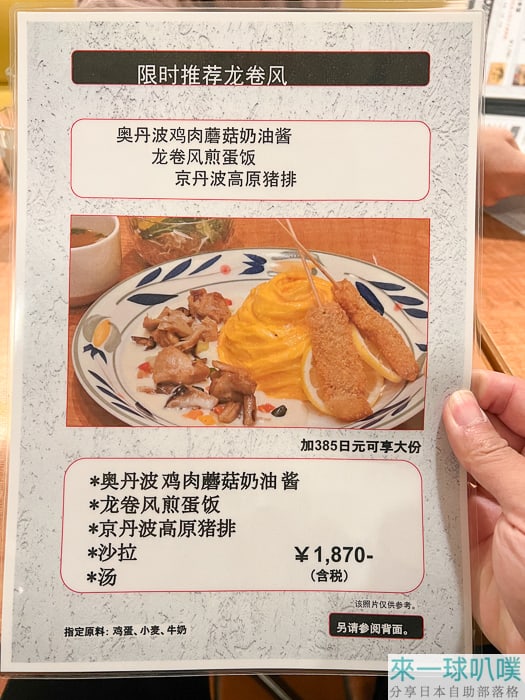 限时推荐龙卷风
奥丹波鸡肉蘑菇奶油酱
龙卷风煎蛋饭
京丹波高原猪排
加385日元可享大份
*奥丹波鸡肉蘑菇奶油酱
*龙卷风煎蛋饭
*京丹波高原猪排
*沙拉
*汤
¥1,870-
(含税)
∴该照片仅供参考。
指定原料：鸡蛋、小麦、牛奶
另请参阅背面。
來一球叭噗
分享日本自助部落格